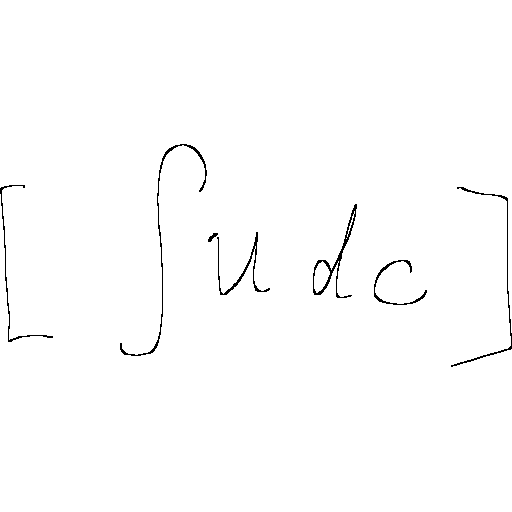 [ ∫ u dc ]